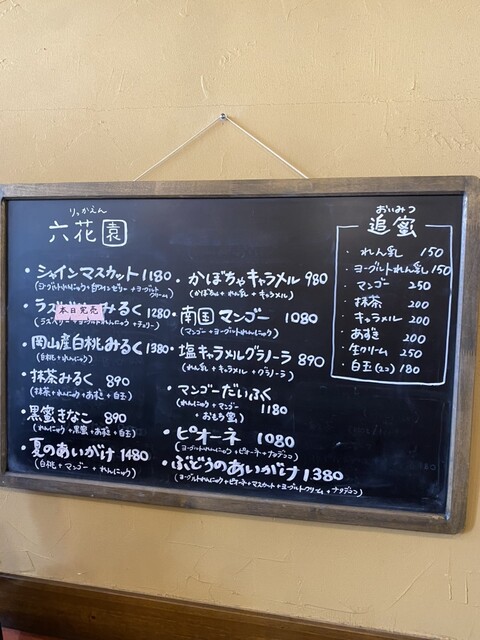 りっかえん
六花園
・シャインマスカット 1180
(ヨーグルトれんにゅう+白ワインゼリー+ヨーグルトクリーム)
本日完売
・ラズ みるく 1280
(ラズベリー+ヨーグルトれんにゅう+チェリー)
・岡山産白桃みるく 1380
(白桃+れんにゅう)
・抹茶みるく 890
(抹茶+れんにゅう+あずき+白玉)
・黒蜜きなこ 890
(れんにゅう+黒蜜+あずき+白玉)
・夏のあいがけ 1480
(白桃+マンゴー+れんにゅう)
・かぼちゃキャラメル 980
(かぼちゃ+れん乳+キャラメル)
・南国マンゴー 1080
(マンゴー+ヨーグルトれんにゅう)
・塩キャラメルグラノーラ 890
(れん乳+キャラメル+グラノーラ)
・マンゴーだいふく
(れんにゅう+マンゴー 1180
+おもち蜜)
・ピオーネ 1080
(ヨーグルトれんにゅう+ピオーネ+ナタデココ)
・ぶどうのあいがけ 1380
(ヨーグルトれんにゅう+ピオーネ+マスカット+ヨーグルトクリーム+ナタデココ)
おいみつ
追蜜
・れん乳 150
・ヨーグルトれん乳 150
・マンゴー 250
・抹茶 200
・キャラメル 200
・あずき 200
・生クリーム 250
・白玉(2コ) 180